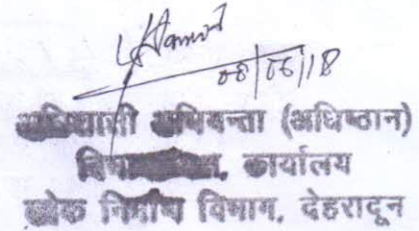 08/06/18
अधिशासी अभियन्ता (अधिष्ठान)
कार्यालय
लोक निर्माण विभाग, देहरादून